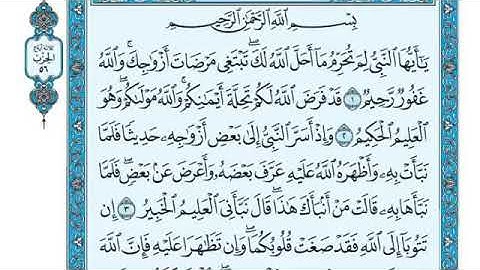 ثلاثة أرباع
الحزب
٥٦
بِسْمِ ٱللَّهِ ٱلرَّحْمَٰنِ ٱلرَّحِيمِ
يَٰٓأَيُّهَا ٱلنَّبِيُّ لِمَ تُحَرِّمُ مَآ أَحَلَّ ٱللَّهُ لَكَ ۖ تَبْتَغِي مَرْضَاتَ أَزْوَٰجِكَ ۚ وَٱللَّهُ
غَفُورٌ رَّحِيمٌ ١ قَدْ فَرَضَ ٱللَّهُ لَكُمْ تَحِلَّةَ أَيْمَٰنِكُمْ ۚ وَٱللَّهُ مَوْلَىٰكُمْ ۖ وَهُوَ
ٱلْعَلِيمُ ٱلْحَكِيمُ ٢ وَإِذْ أَسَرَّ ٱلنَّبِيُّ إِلَىٰ بَعْضِ أَزْوَٰجِهِۦ حَدِيثًا فَلَمَّا
نَبَّأَتْ بِهِۦ وَأَظْهَرَهُ ٱللَّهُ عَلَيْهِ عَرَّفَ بَعْضَهُۥ وَأَعْرَضَ عَنۢ بَعْضٍ ۖ فَلَمَّا
نَبَّأَهَا بِهِۦ قَالَتْ مَنْ أَنۢبَأَكَ هَٰذَا ۖ قَالَ نَبَّأَنِيَ ٱلْعَلِيمُ ٱلْخَبِيرُ ٣ إِن
تَتُوبَآ إِلَى ٱللَّهِ فَقَدْ صَغَتْ قُلُوبُكُمَا ۖ وَإِن تَظَٰهَرَا عَلَيْهِ فَإِنَّ ٱللَّهَ